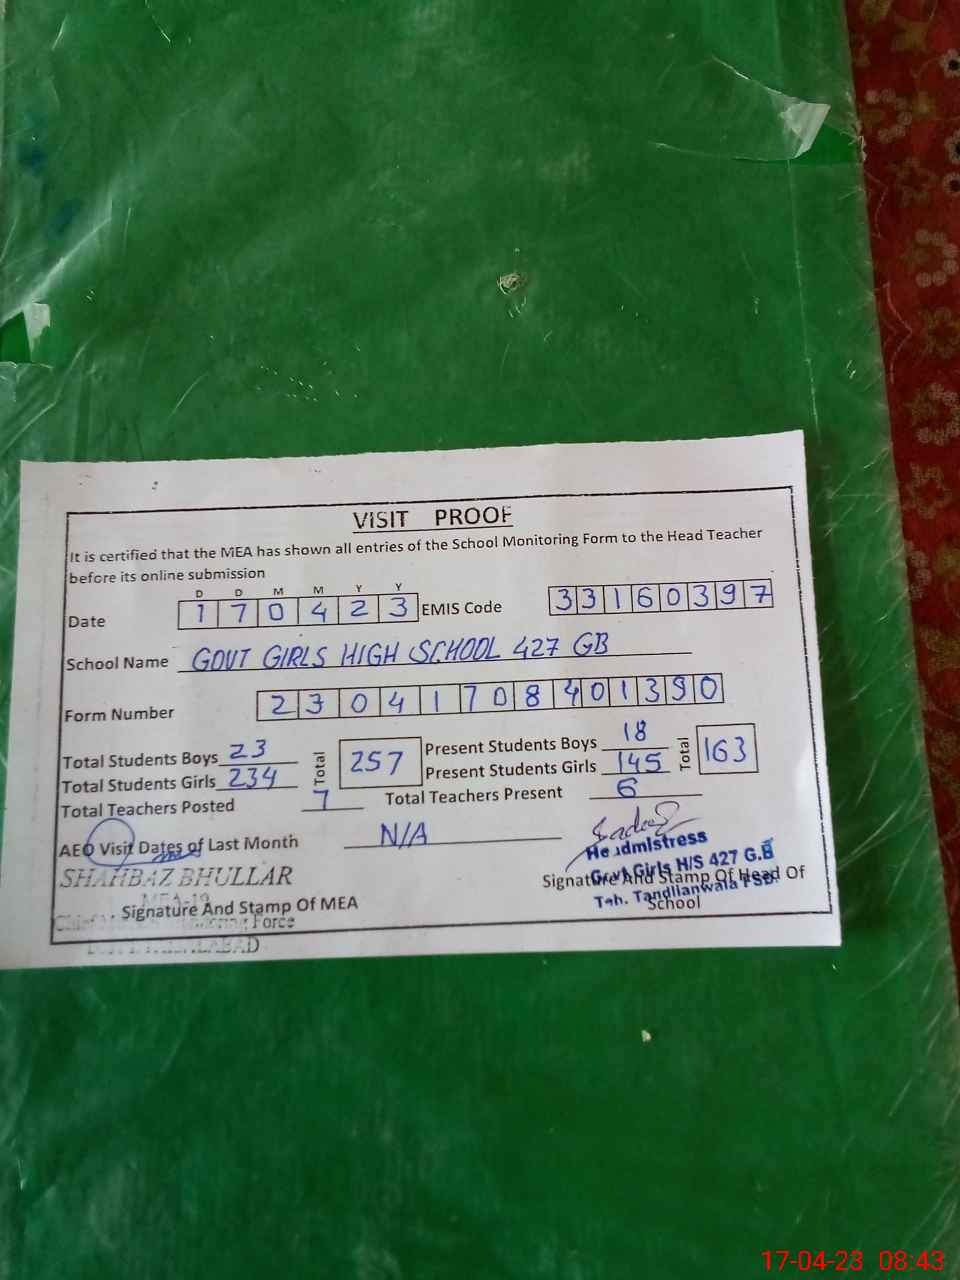 VISIT PROOF
It is certified that the MEA has shown all entries of the School Monitoring Form to the Head Teacher
before its online submission
D D M M Y Y
Date 1 7 0 4 2 3 EMIS Code 3 3 1 6 0 3 9 7
School Name GOVT GIRLS HIGH SCHOOL 427 GB
Form Number 2 3 0 4 1 7 0 8 4 0 1 3 9 0
Total Students Boys 23 Total 257 Present Students Boys 18 Total 163
Total Students Girls 234 Present Students Girls 145
Total Teachers Posted 7 Total Teachers Present 6
AEO Visit Dates of Last Month N/A
Headmistress
SHAHBAZ BHULLAR
Govt. Girls H/S 427 G.B
Signature And Stamp Of Head Of
School
Teh. Tandlianwala FSD.
MEA-19
Signature And Stamp Of MEA
Monitoring Force
17-04-23 08:43